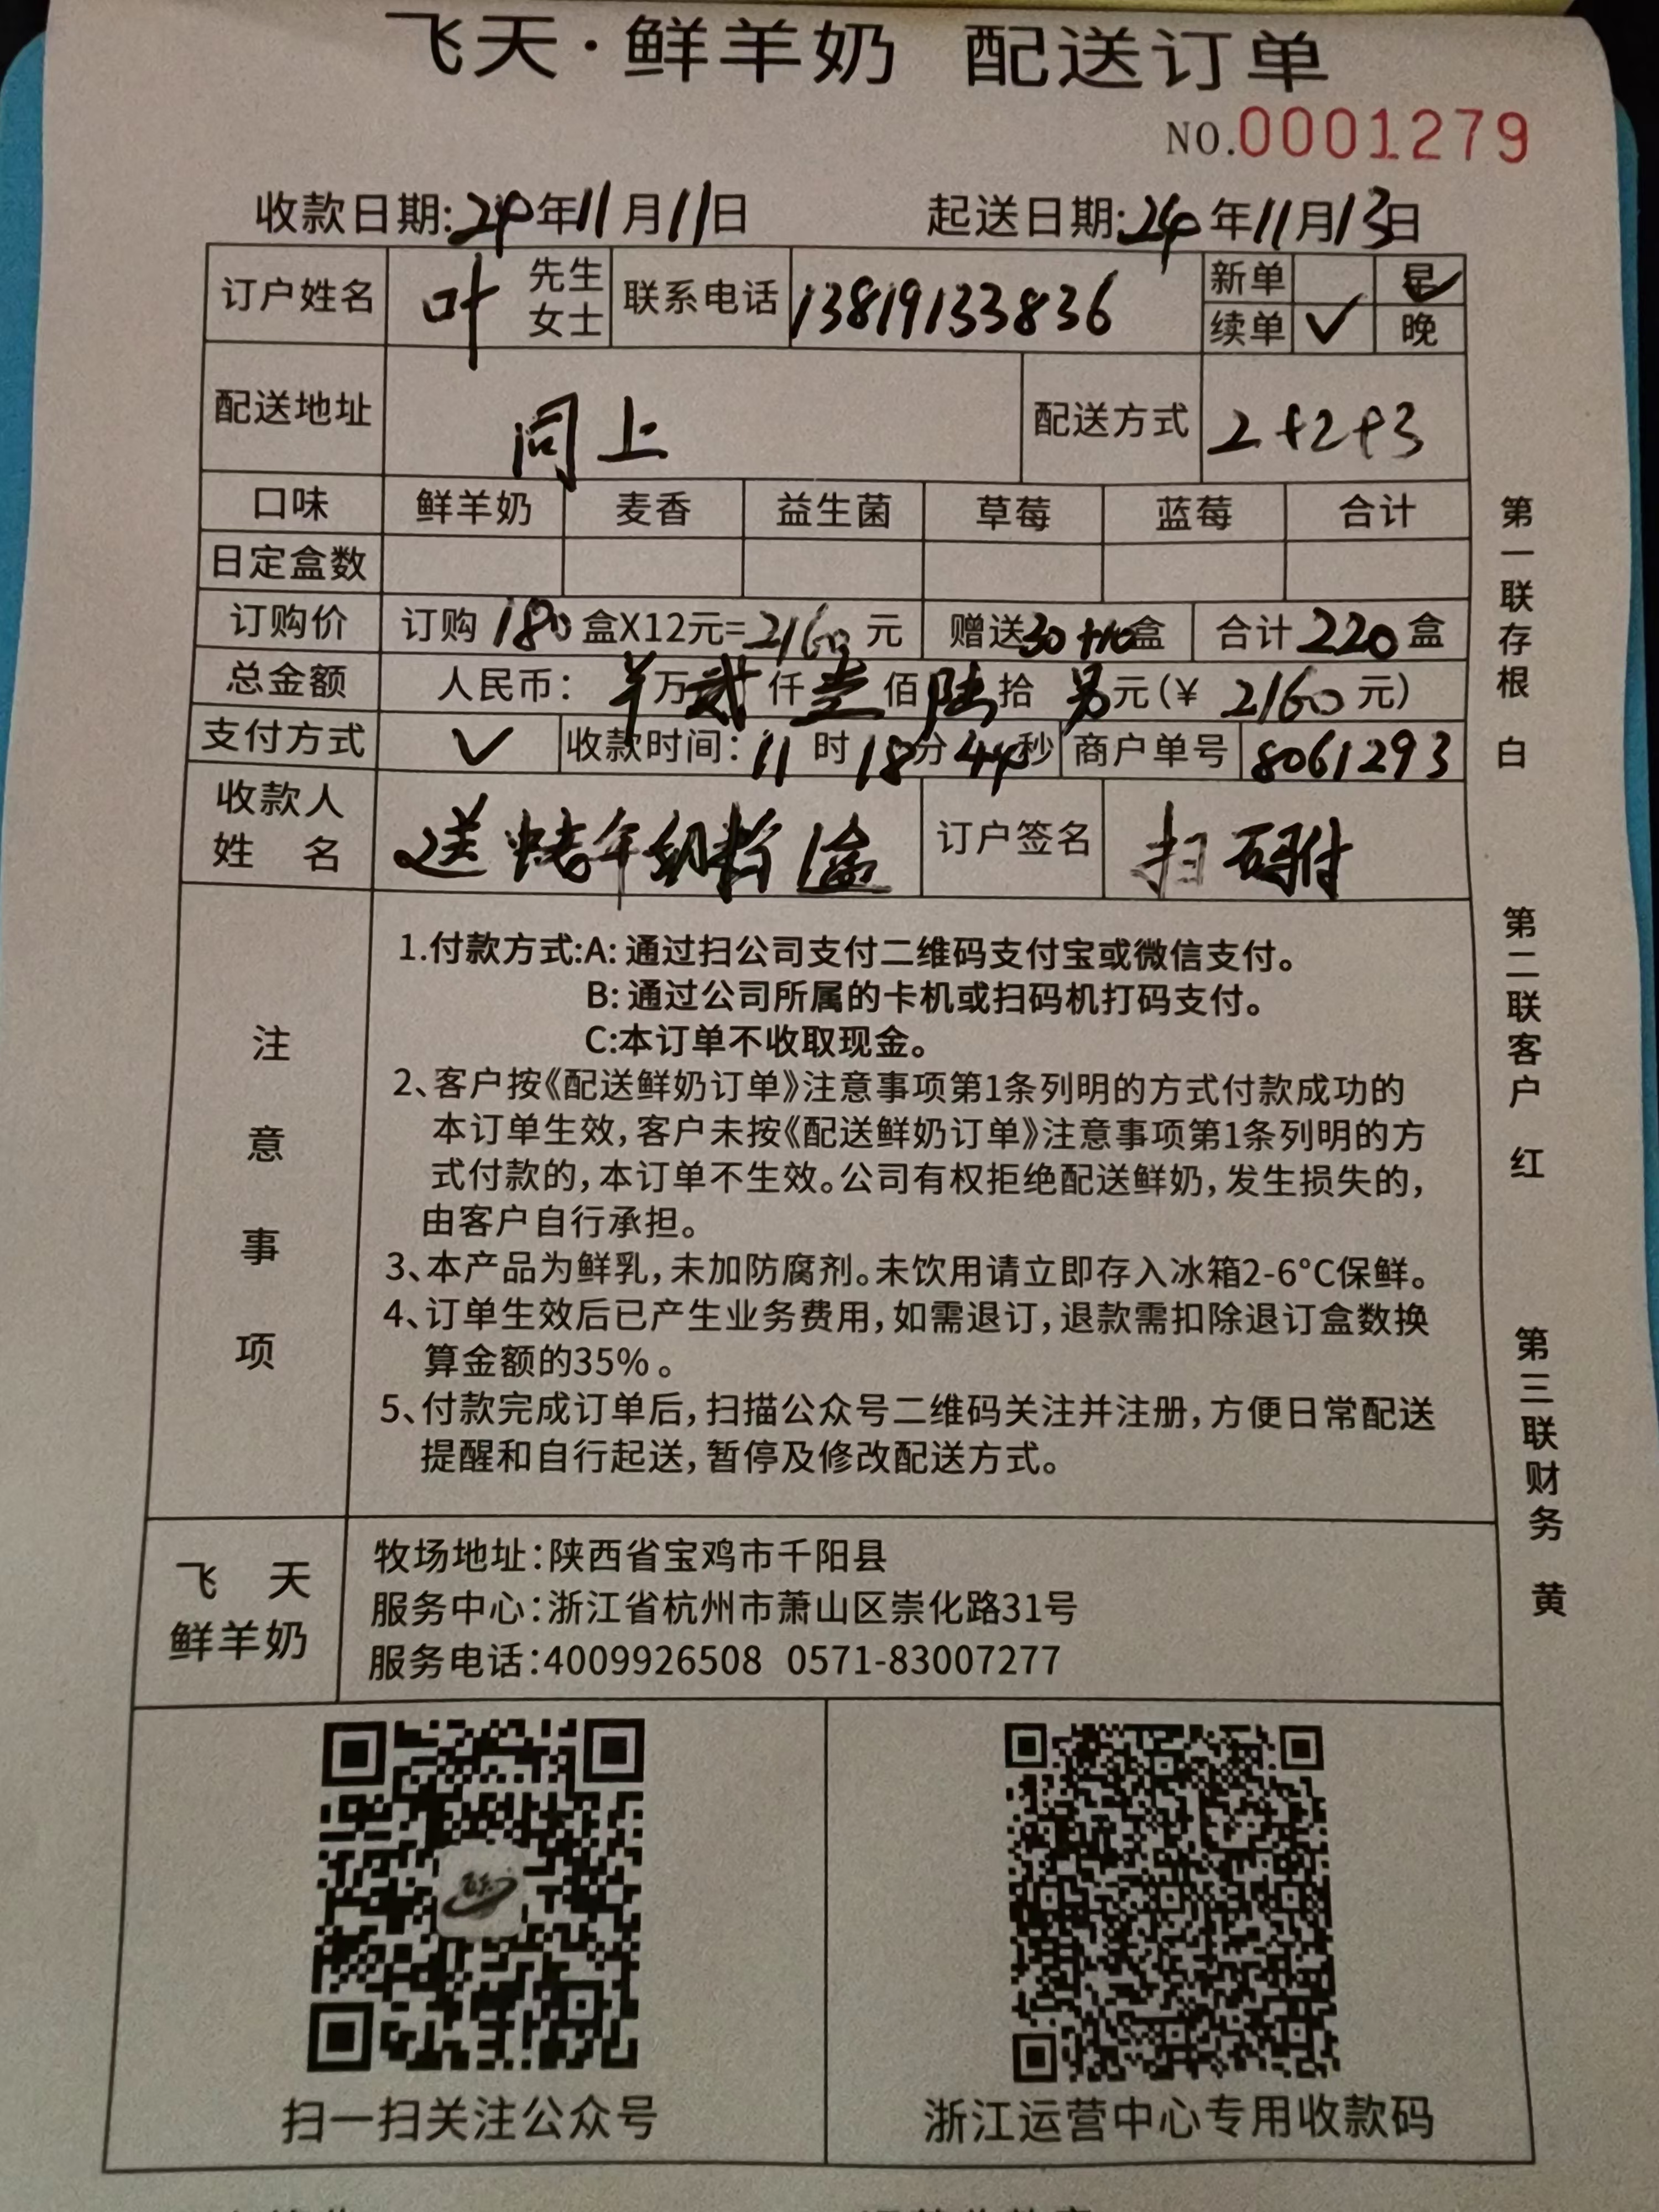 飞天·鲜羊奶 配送订单
NO.0001279
收款日期:24年11月11日 起送日期:24年11月13日
订户姓名 叶 先生 女士 联系电话 13819133836 新单 早✓
续单 ✓ 晚
配送地址 同上 配送方式 2+2+3
口味 鲜羊奶 麦香 益生菌 草莓 蓝莓 合计
日定盒数
订购价 订购 180 盒X12元=2160 元 赠送30+10盒 合计 220 盒
总金额 人民币: 万贰仟壹佰陆拾 元(¥ 2160 元)
支付方式 ✓ 收款时间: 11 时 18分 44秒 商户单号 8061293
收款人姓 名 送 羊奶粉1盒 订户签名 扫码付
注意事项
1.付款方式:A: 通过扫公司支付二维码支付宝或微信支付。
B: 通过公司所属的卡机或扫码机打码支付。
C:本订单不收取现金。
2、客户按《配送鲜奶订单》注意事项第1条列明的方式付款成功的
本订单生效,客户未按《配送鲜奶订单》注意事项第1条列明的方
式付款的,本订单不生效。公司有权拒绝配送鲜奶,发生损失的,
由客户自行承担。
3、本产品为鲜乳,未加防腐剂。未饮用请立即存入冰箱2-6°C保鲜。
4、订单生效后已产生业务费用,如需退订,退款需扣除退订盒数换
算金额的35%。
5、付款完成订单后,扫描公众号二维码关注并注册,方便日常配送
提醒和自行起送,暂停及修改配送方式。
飞 天
鲜羊奶
牧场地址:陕西省宝鸡市千阳县
服务中心:浙江省杭州市萧山区崇化路31号
服务电话:4009926508 0571-83007277
扫一扫关注公众号 浙江运营中心专用收款码
第一联存根 白
第二联客户 红
第三联财务 黄